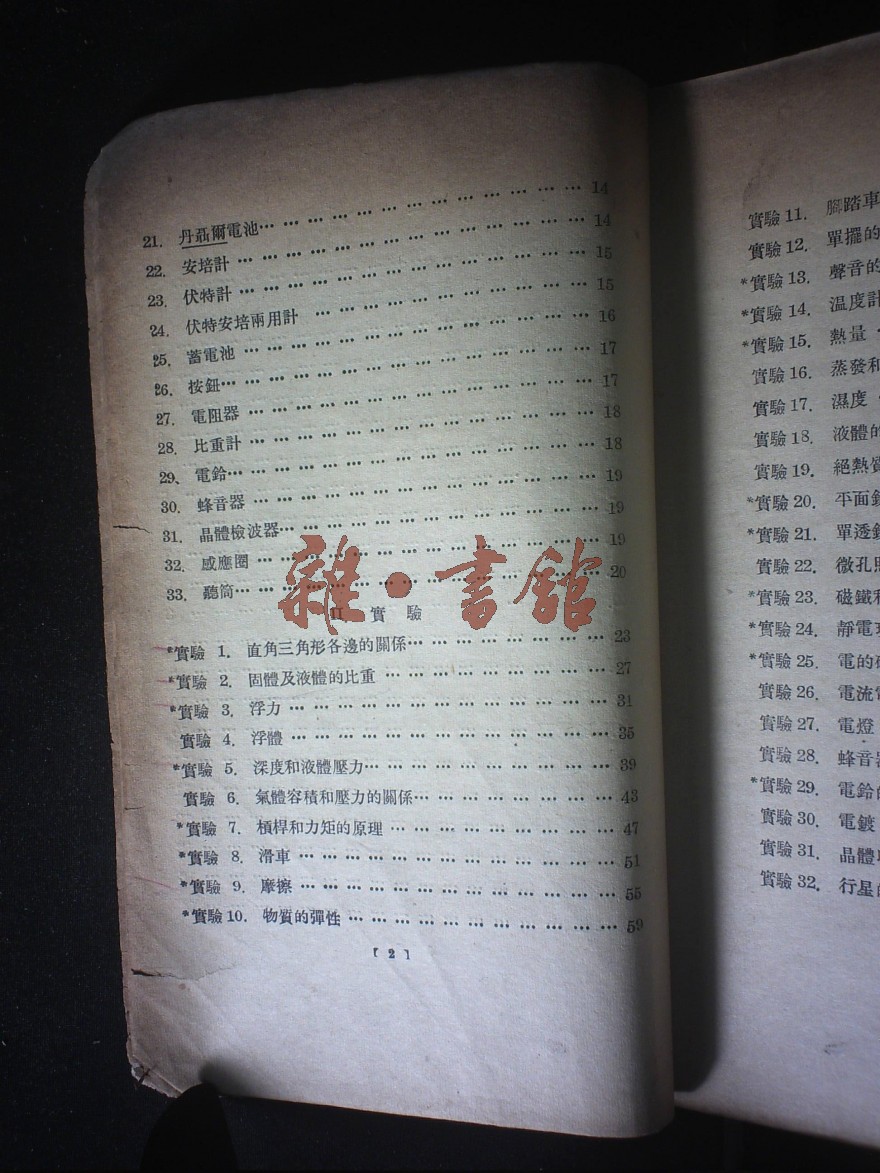 21. 丹聶爾電池… … … … … … … … … … … … … … 14
22. 安培計 … … … … … … … … … … … … … … … 14
23. 伏特計 … … … … … … … … … … … … … … … 15
24. 伏特安培兩用計 … … … … … … … … … … … … 15
25. 蓄電池 … … … … … … … … … … … … … … … 16
26. 按鈕… … … … … … … … … … … … … … … … 17
27. 電阻器 … … … … … … … … … … … … … … … 17
28. 比重計 … … … … … … … … … … … … … … … 18
29. 電鈴… … … … … … … … … … … … … … … … 18
30. 蜂音器 … … … … … … … … … … … … … … … 19
31. 晶體檢波器… … … … … … … … … … … … … … 19
32. 感應圈 … … … … … … … … … … … … … … … 19
33. 聽筒… … … … … … … … … … … … … … … … 20
雜·書館
II 實驗
*實驗 1. 直角三角形各邊的關係… … … … … … … … … 23
*實驗 2. 固體及液體的比重 … … … … … … … … … … 27
*實驗 3. 浮力 … … … … … … … … … … … … … … 31
實驗 4. 浮體 … … … … … … … … … … … … … … 35
*實驗 5. 深度和液體壓力… … … … … … … … … … … 39
實驗 6. 氣體容積和壓力的關係… … … … … … … … … 43
*實驗 7. 槓桿和力矩的原理 … … … … … … … … … … 47
*實驗 8. 滑車 … … … … … … … … … … … … … … 51
*實驗 9. 摩擦 … … … … … … … … … … … … … … 55
*實驗10. 物質的彈性 … … … … … … … … … … … … 59
[ 2 ]
實驗 11. 腳踏車
實驗 12. 單擺的
*實驗 13. 聲音的
*實驗 14. 温度計
*實驗 15. 熱量
實驗 16. 蒸發和
實驗 17. 濕度
實驗 18. 液體的
實驗 19. 絕熱質
*實驗 20. 平面鏡
*實驗 21. 單透鏡
實驗 22. 微孔照
*實驗 23. 磁鐵和
*實驗 24. 靜電
*實驗 25. 電的
實驗 26. 電流
實驗 27. 電燈
實驗 28. 蜂音器
*實驗 29. 電鈴的
實驗 30. 電鍍
實驗 31. 晶體
實驗 32. 行星的